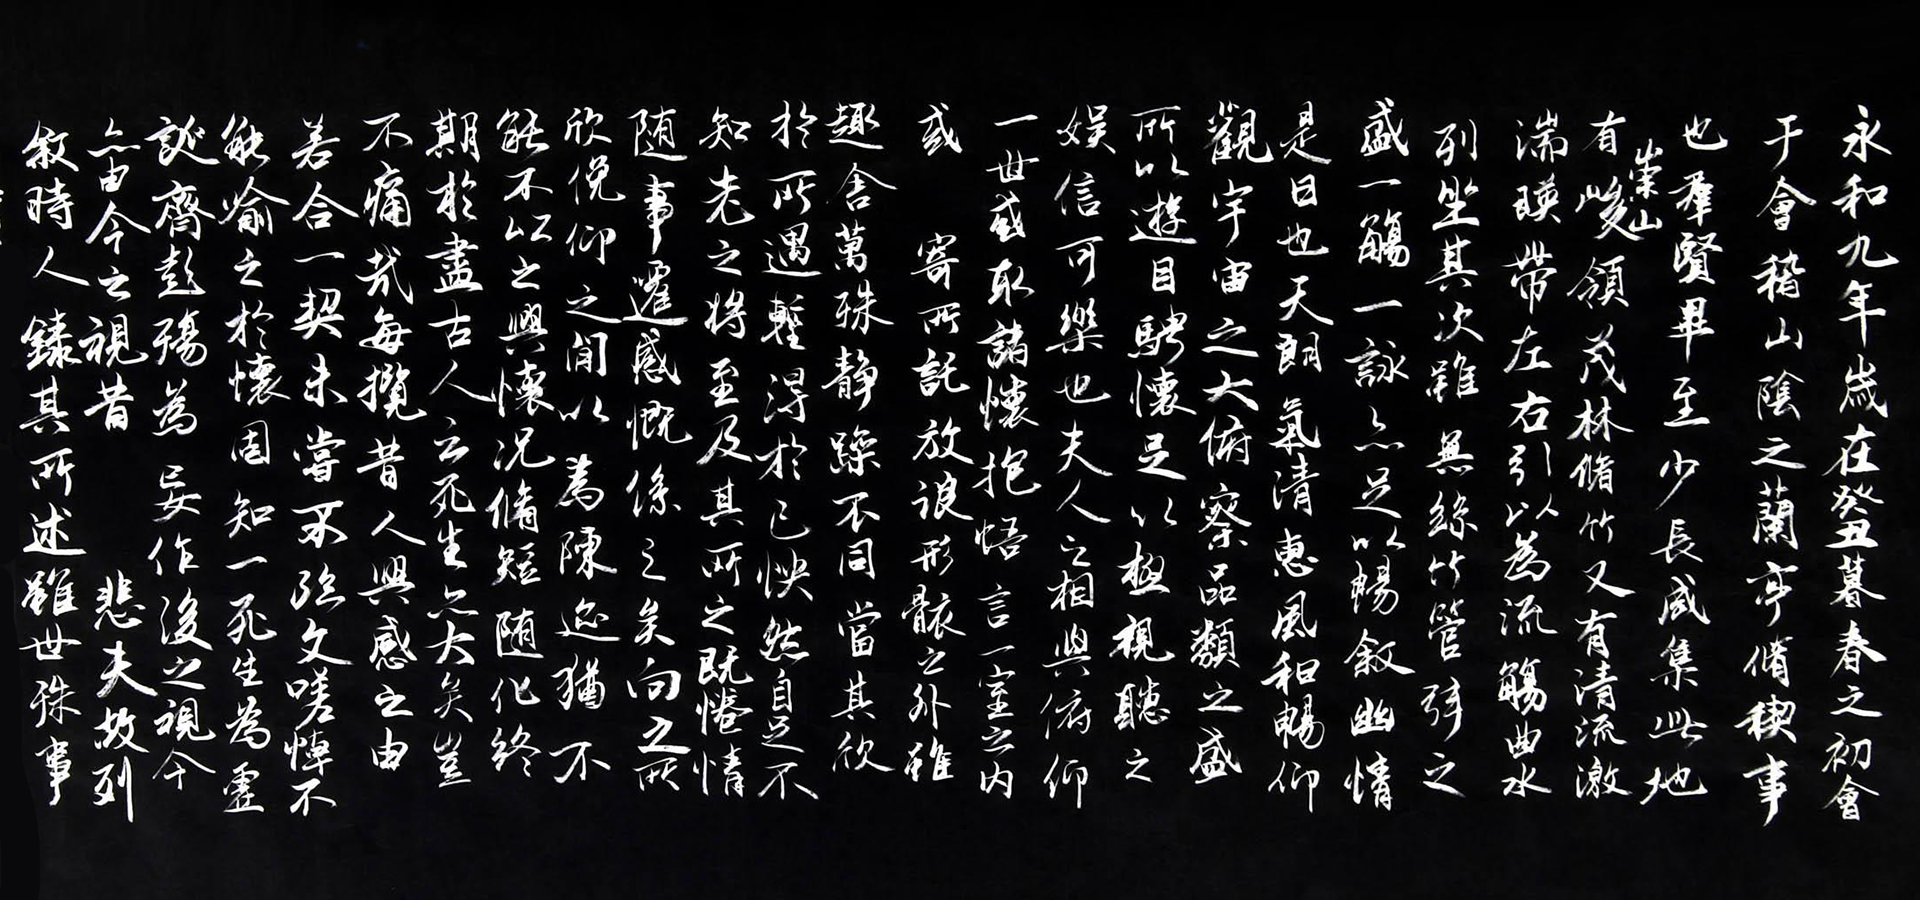 永和九年歲在癸丑暮春之初會
于會稽山陰之蘭亭脩稧事
也羣賢畢至少長咸集此地
崇山
有峻領茂林脩竹又有清流激
湍暎帶左右引以為流觴曲水
列坐其次雖無絲竹管弦之
盛一觴一詠亦足以暢敘幽情
是日也天朗氣清惠風和暢仰
觀宇宙之大俯察品類之盛
所以遊目騁懷足以極視聽之
娛信可樂也夫人之相與俯仰
一世或取諸懷抱悟言一室之內
或寄所託放浪形骸之外雖
趣舍萬殊静躁不同當其欣
於所遇蹔得於己怏然自足不
知老之將至及其所之既惓情
随事遷感慨係之矣向之所
欣俛仰之閒以為陳迹猶不
能不以之興懷況脩短随化終
期於盡古人云死生亦大矣豈
不痛哉每攬昔人興感之由
若合一契未嘗不臨文嗟悼不
能喻之於懷固知一死生為虛
誕齊彭殤為妄作後之視今
亦由今之視昔悲夫故列
敘時人錄其所述雖世殊事